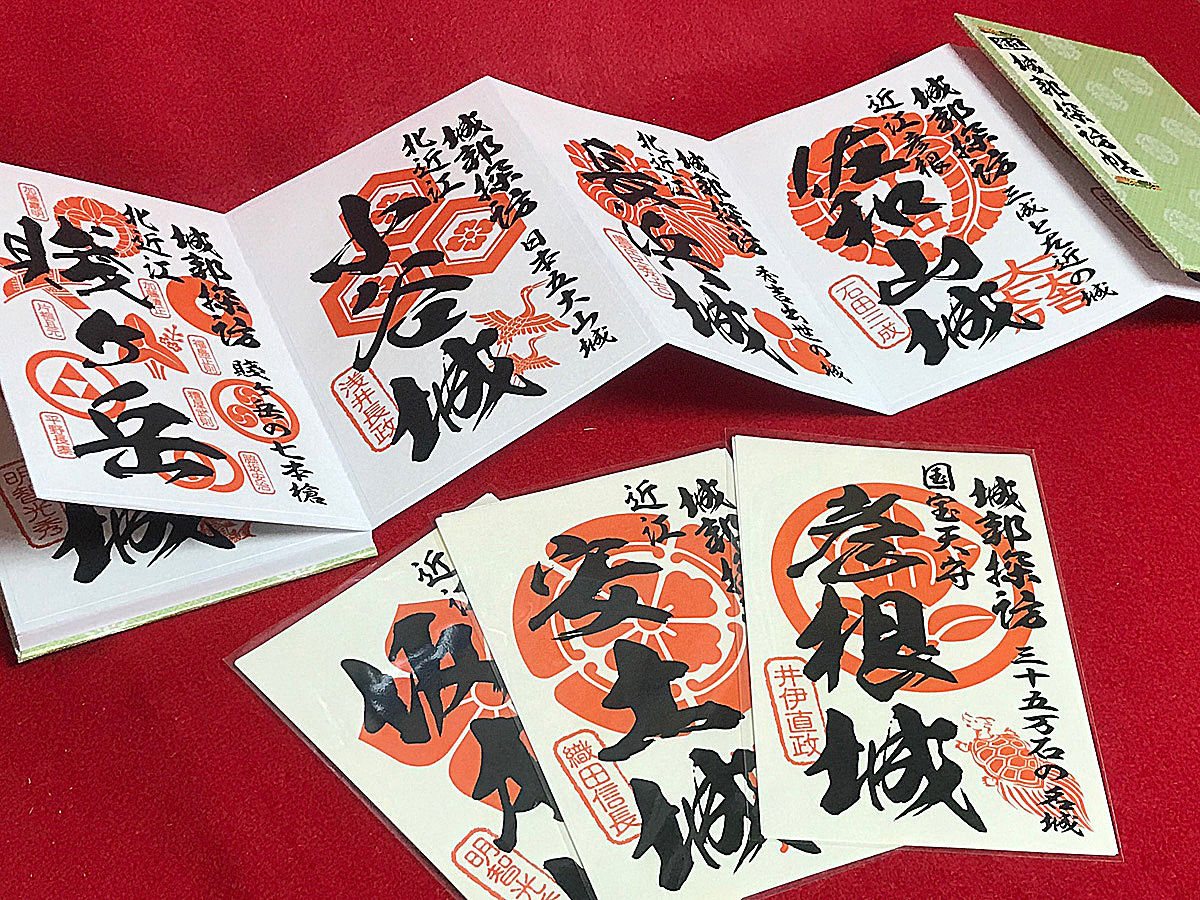 近江
城郭探訪帖
城郭探訪
近江彦根
佐和山城
三成と左近の城
石田三成
大一大万大吉
城郭探訪
北近江
長浜城
秀吉出世の城
城郭探訪
北近江
小谷城
日本五大山城
浅井長政
城郭探訪
北近江
賤ヶ岳
賤ヶ岳の七本槍
加藤嘉明
片桐且元
平野長泰
福島正則
脇坂安治
明智光秀
城
城郭探訪
国宝天守
彦根城
三十五万石の名城
井伊直政
城郭探
近江
安土城
織田信長
近江
坂本
明智光